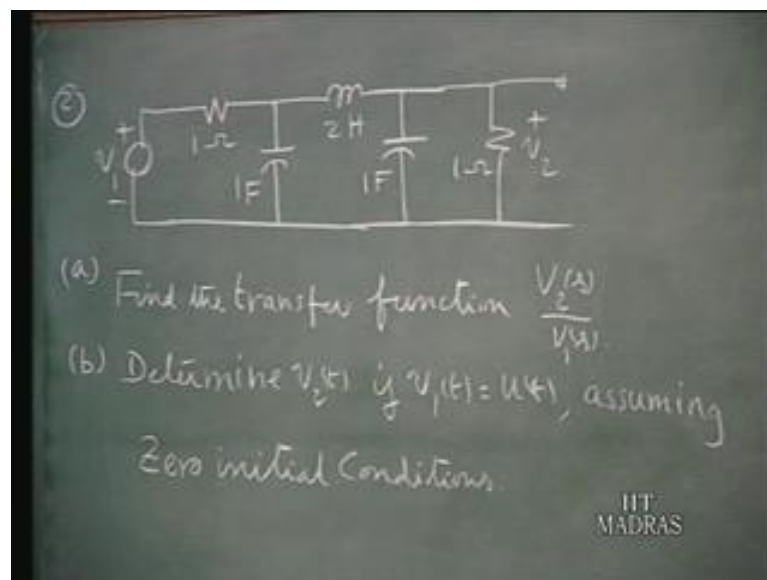 ②
1Ω
2H
V₁
+
-
1F
1F
1Ω
+
V₂
(a) Find the transfer function V₂(s)/V₁(s).
(b) Determine v₂(t) if v₁(t) = u(t), assuming
Zero initial Conditions.
IIT
MADRAS